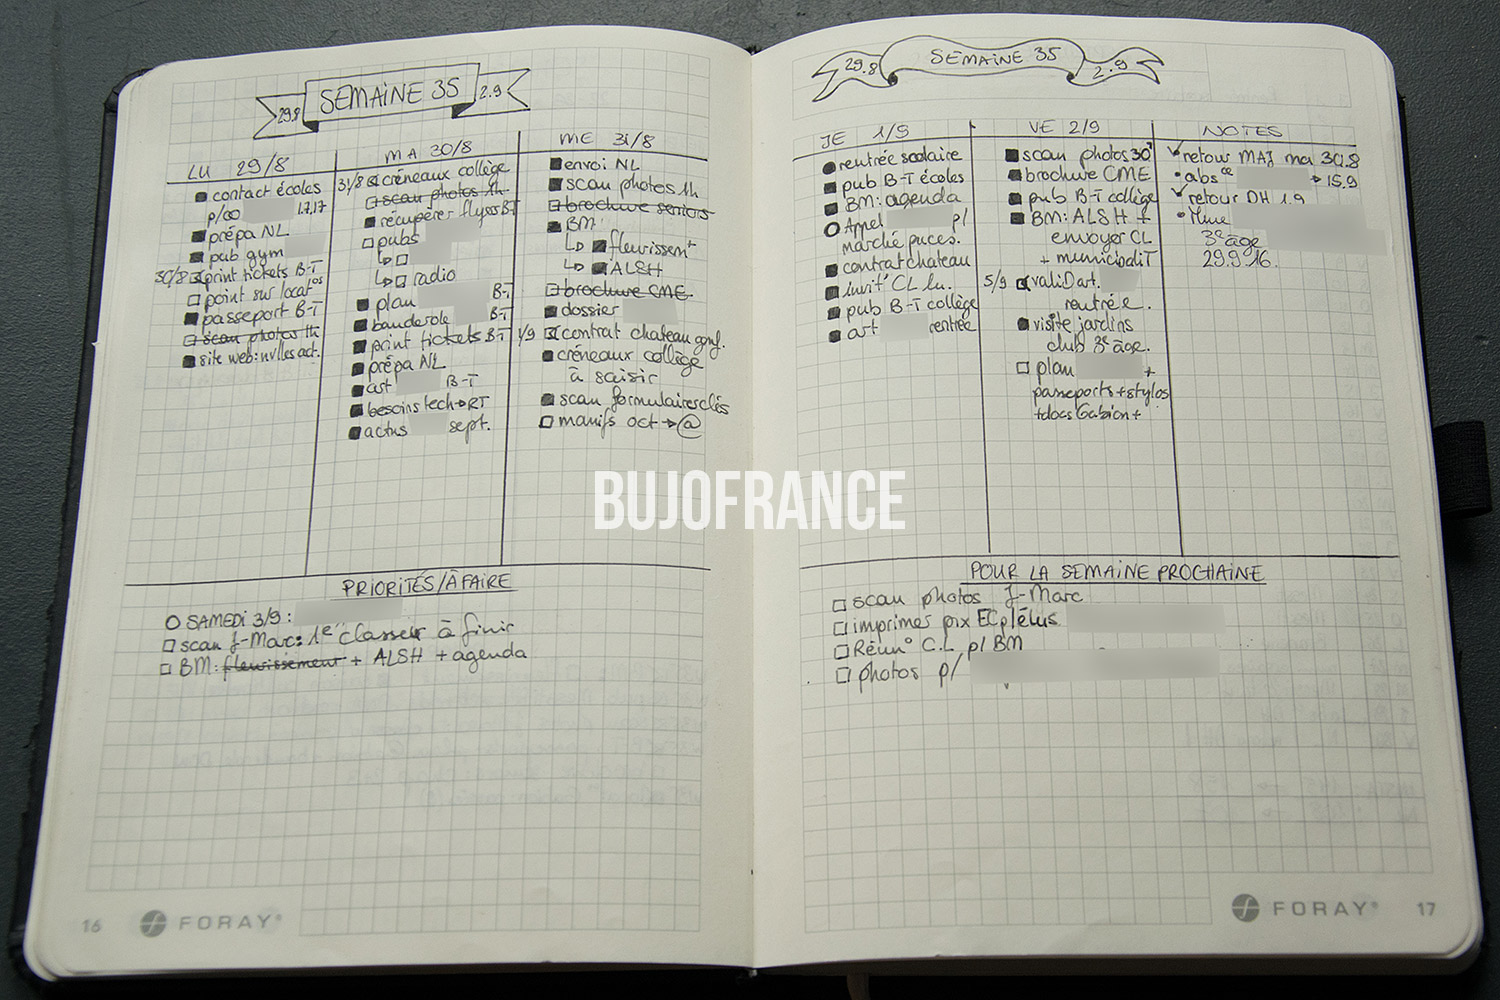 29.8 SEMAINE 35 2.9
LU 29/8
contact écoles
p/∞ 1.7,17
prépa NL
pub gym
30/8 print tickets B-T
point sur locat°s
passeport B-T
scan photos 1h
site web: nvlles act.
MA 30/8
31/8 créneaux collège
scan photos 1h
récupérer flyers BT
pubs
↳
↳ radio
plan B-T
banderole B-T
print tickets B-T
prépa NL
art B-T
besoins tech → RT
actus sept.
ME 31/8
envoi NL
scan photos 1h
brochure seniors
BM
↳ fleurissemt
↳ ALSH
brochure CME
dossier
1/9 contrat chateau gonf.
créneaux collège
à saisir
scan formulaires clés
manifs oct → @
PRIORITÉS/À FAIRE
SAMEDI 3/9 :
scan J-Marc: 1er classeur à finir
BM: fleurissement + ALSH + agenda
16 FORAY®
29.8 SEMAINE 35 2.9
JE 1/9
rentrée scolaire
pub B-T écoles
BM: agenda
Appel p/
marché puces.
contrat chateau
invit° CL lu.
pub B-T collège
art rentrée
VE 2/9
scan photos 30'
brochure CME
pub B-T collège
BM: ALSH +
envoyer CL
+ municipaliT
5/9 valiD art.
rentrée.
visite jardins
club 3e âge.
plan +
passeports + stylos
+ docs Gabion +
NOTES
retour MAJ ma 30.8
abs ce → 15.9
retour DH 1.9
Mme
3e âge
29.9.16.
POUR LA SEMAINE PROCHAINE
scan photos J-Marc
imprimes prix EC p/élus
Réun° C.L p/ BM
photos p/
FORAY® 17
BUJOFRANCE